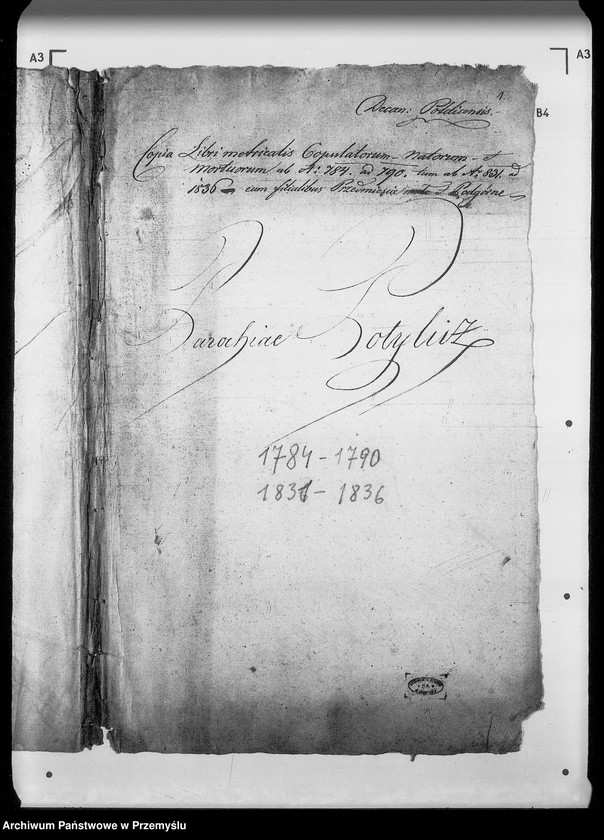 A3
A3
B4
1.
Decan: Potelicensis.
Copia Libri metricalis Copulatorum – Natorum – et
Mortuorum ab Aº: 784. ad 790. tum ab Aº: 831. ad
1836 cum filialibus Przedmieście et Podgórne
Parochiae Potylicz
1784 – 1790
1831 – 1836
Archiwum Państwowe w Przemyślu